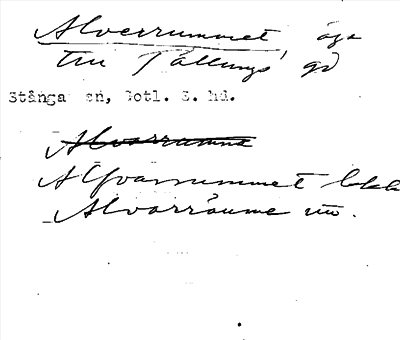 Alverrummet, äga
till Tällungs gd
Stånga sn, Gotl. S. hd.
Alvarrumme
Alfvarrummet lokk
Alvarråume un.